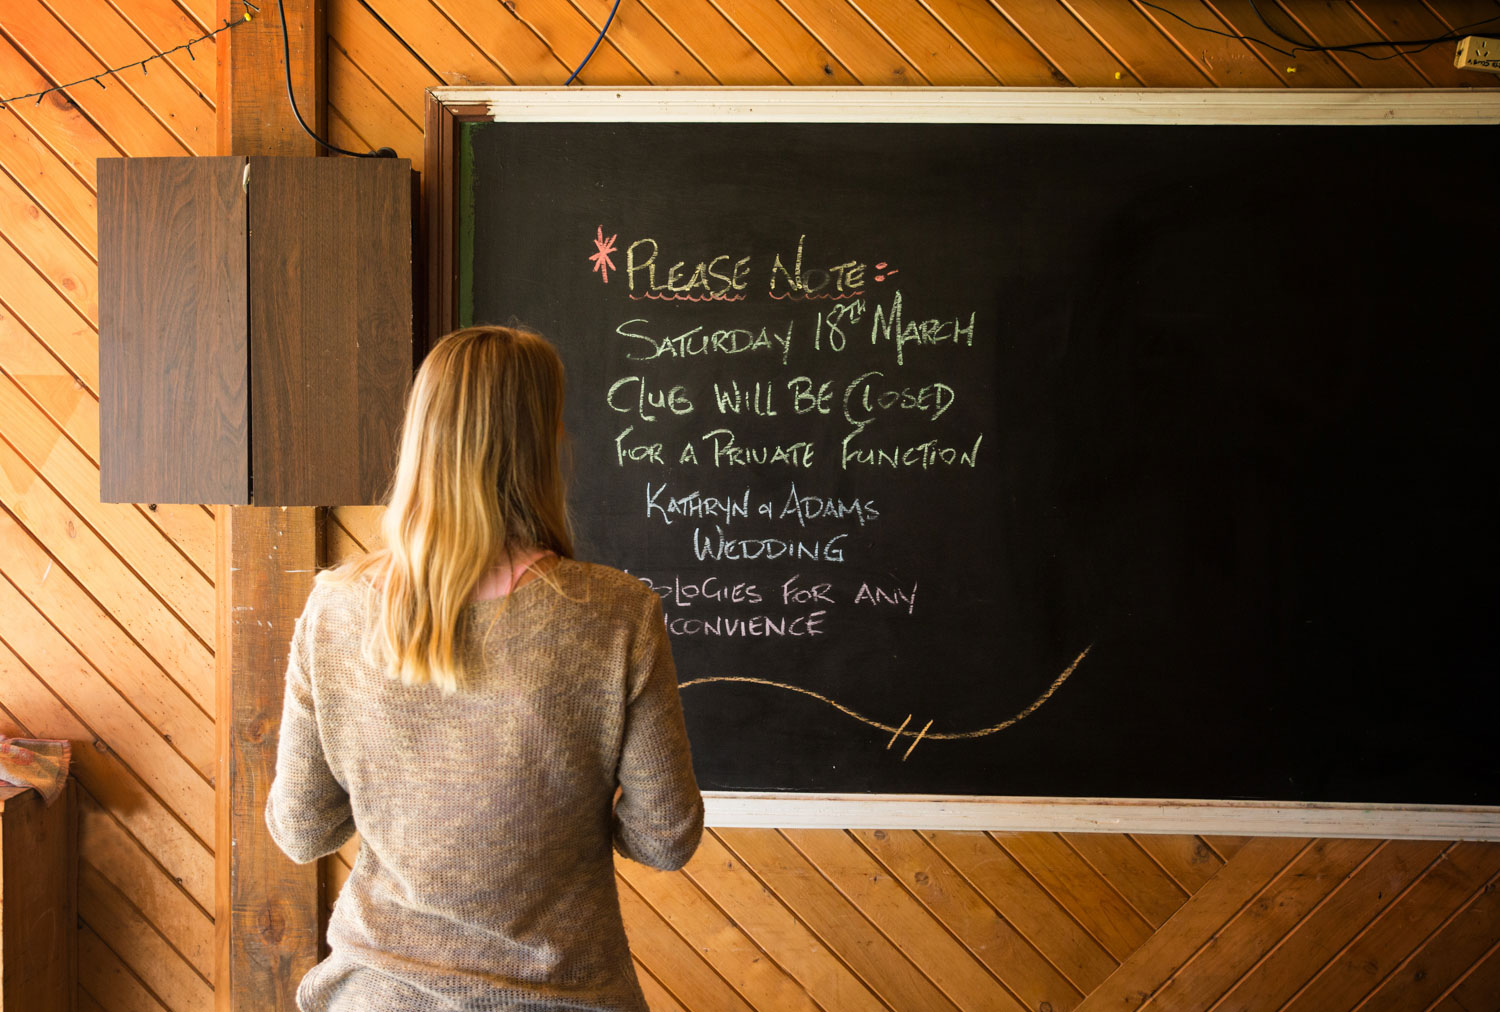 * PLEASE NOTE:-
SATURDAY 18TH MARCH
CLUB WILL BE CLOSED
FOR A PRIVATE FUNCTION
KATHRYN & ADAMS
WEDDING
OLOGIES FOR ANY
CONVIENCE